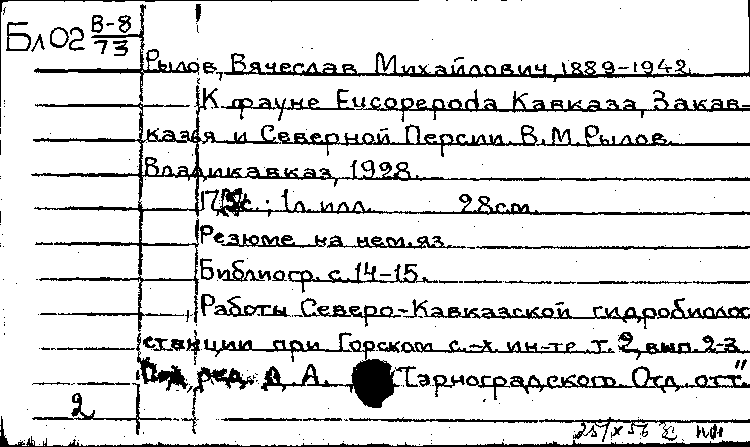 Бл 02 В-8/73
Рылов, Вячеслав Михайлович, 1889-1942.
К фауне Eucopepoda Кавказа, Закав-
казья и Северной Персии. В.М. Рылов.
Владикавказ, 1928.
; 1 л. илл. 28 см.
Резюме на нем. яз.
Библиогр. с. 14-15.
Работы Северо-Кавказской гидробиолог
станции при Горском с.-х. ин-те. т. 2, вып. 2-3
Под ред. Д. А. Тарноградского. Отд. отт."
2
25/X 56